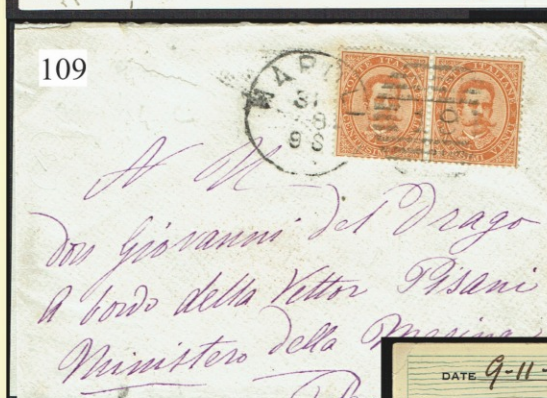 109
POSTE ITALIANE POSTE ITALIANE
A M
don Giovanni del Drago
A bordo della Vettor Pisani
Ministero della Marina
DATE 9-11-